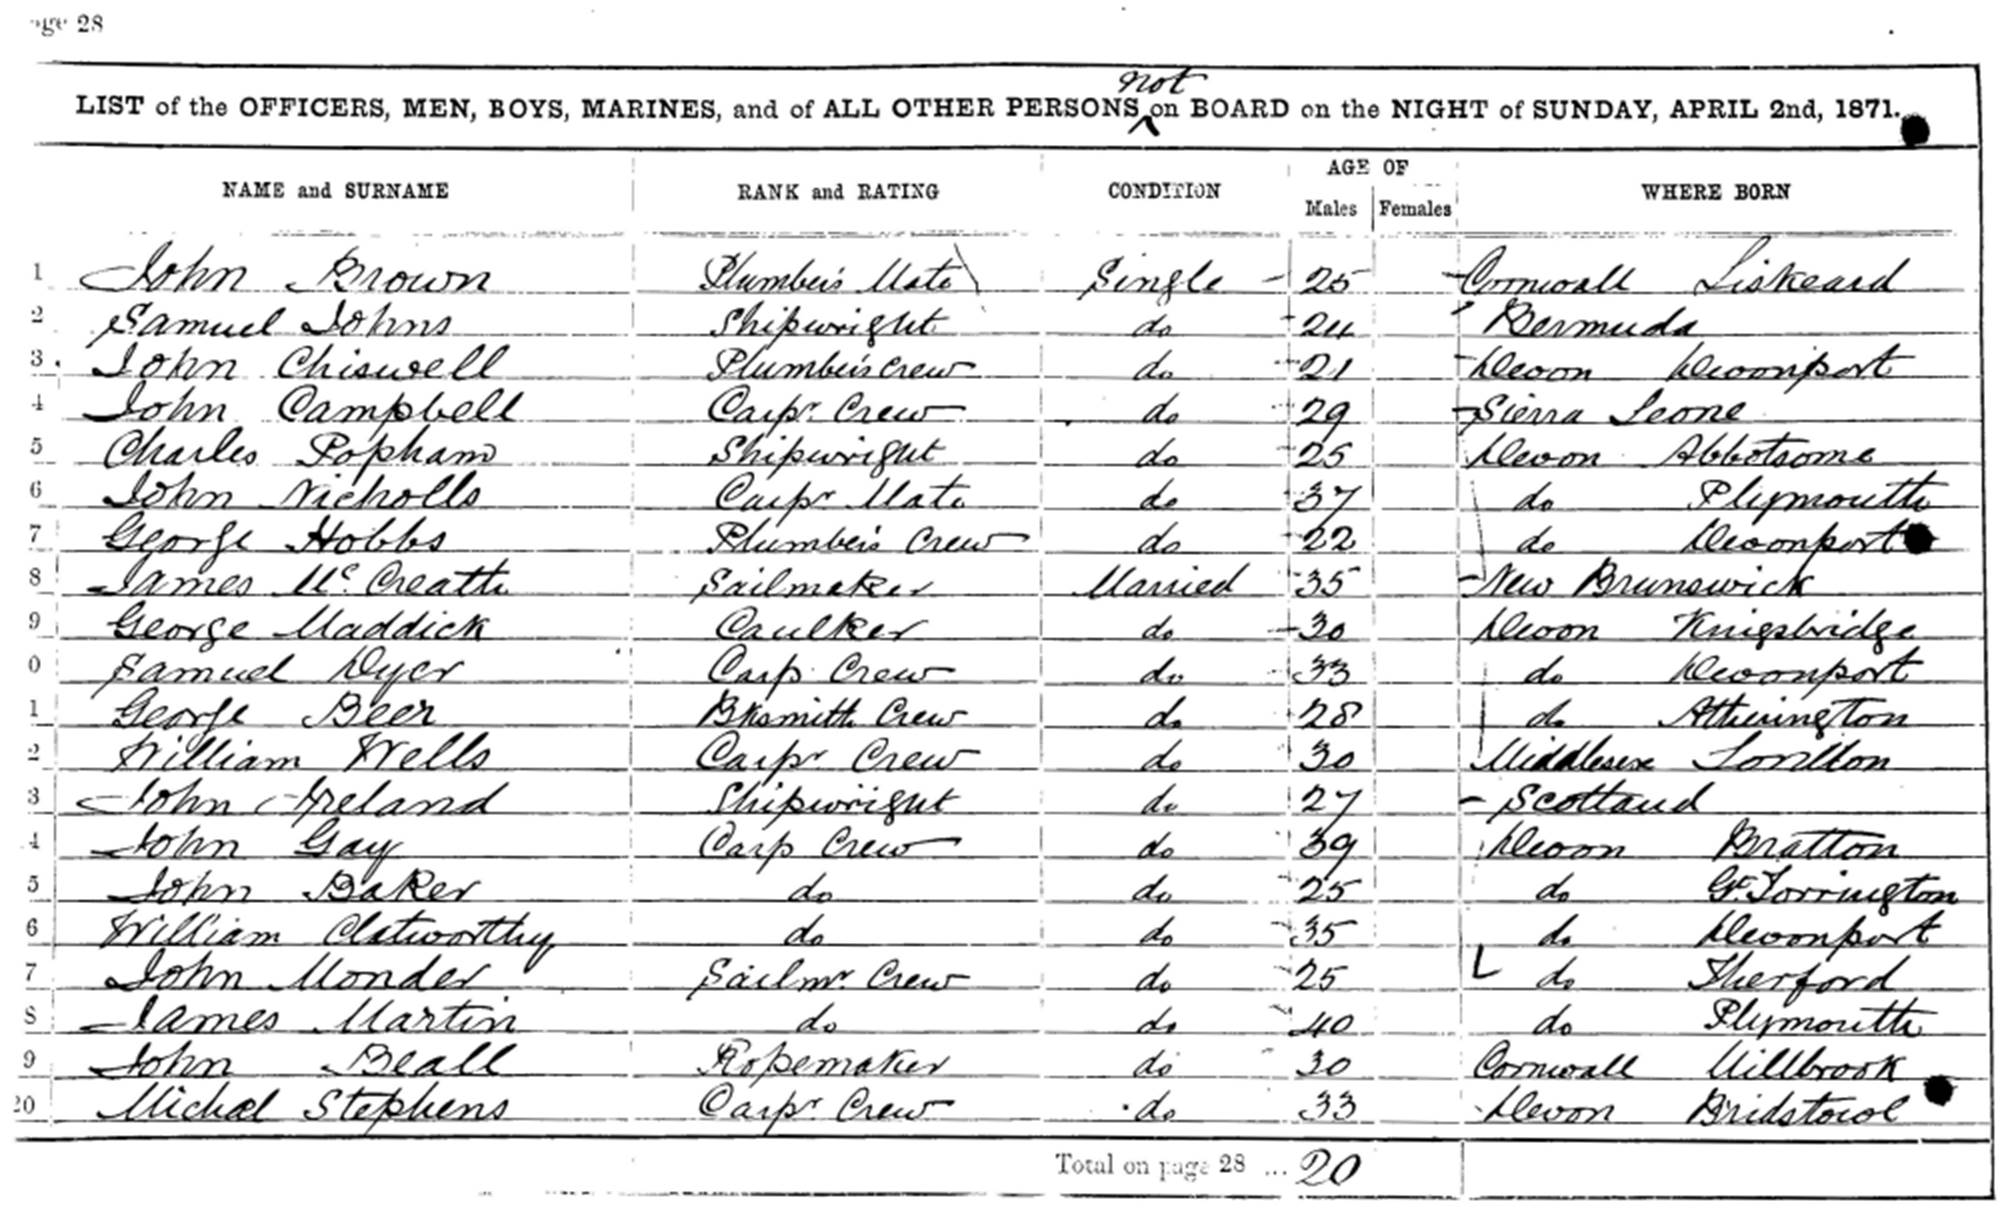 age 28
not
LIST of the OFFICERS, MEN, BOYS, MARINES, and of ALL OTHER PERSONS on BOARD on the NIGHT of SUNDAY, APRIL 2nd, 1871.
NAME and SURNAME RANK and RATING CONDITION AGE OF Males Females WHERE BORN
1 John Brown Plumber's Mate Single 25 Cornwall Liskeard
2 Samuel Johns Shipwright do 24 Bermuda
3 John Chiswell Plumber's Crew do 21 Devon Devonport
4 John Campbell Carpr. Crew do 29 Sierra Leone
5 Charles Popham Shipwright do 25 Devon Abbotsome
6 John Nicholls Carpr Mate do 37 do Plymouth
7 George Hobbs Plumber's Crew do 22 do Devonport
8 James Mc. Creath Sailmaker Married 35 New Brunswick
9 George Maddick Caulker do 30 Devon Kingsbridge
0 Samuel Dyer Carp. Crew do 33 do Devonport
1 George Beer Bksmith Crew do 28 do Atherington
2 William Wells Carpr Crew do 30 Middlesex London
3 John Ireland Shipwright do 27 Scotland
4 John Gay Carp Crew do 39 Devon Bratton
5 John Baker do do 25 do Gt. Torrington
6 William Clatworthy do do 35 do Devonport
7 John Monder Sailmr. Crew do 25 do Therford
8 James Martin do do 40 do Plymouth
9 John Beall Ropemaker do 30 Cornwall Millbrook
20 Michel Stephens Carpr Crew do 33 Devon Bridstowe
Total on page 28 ... 20